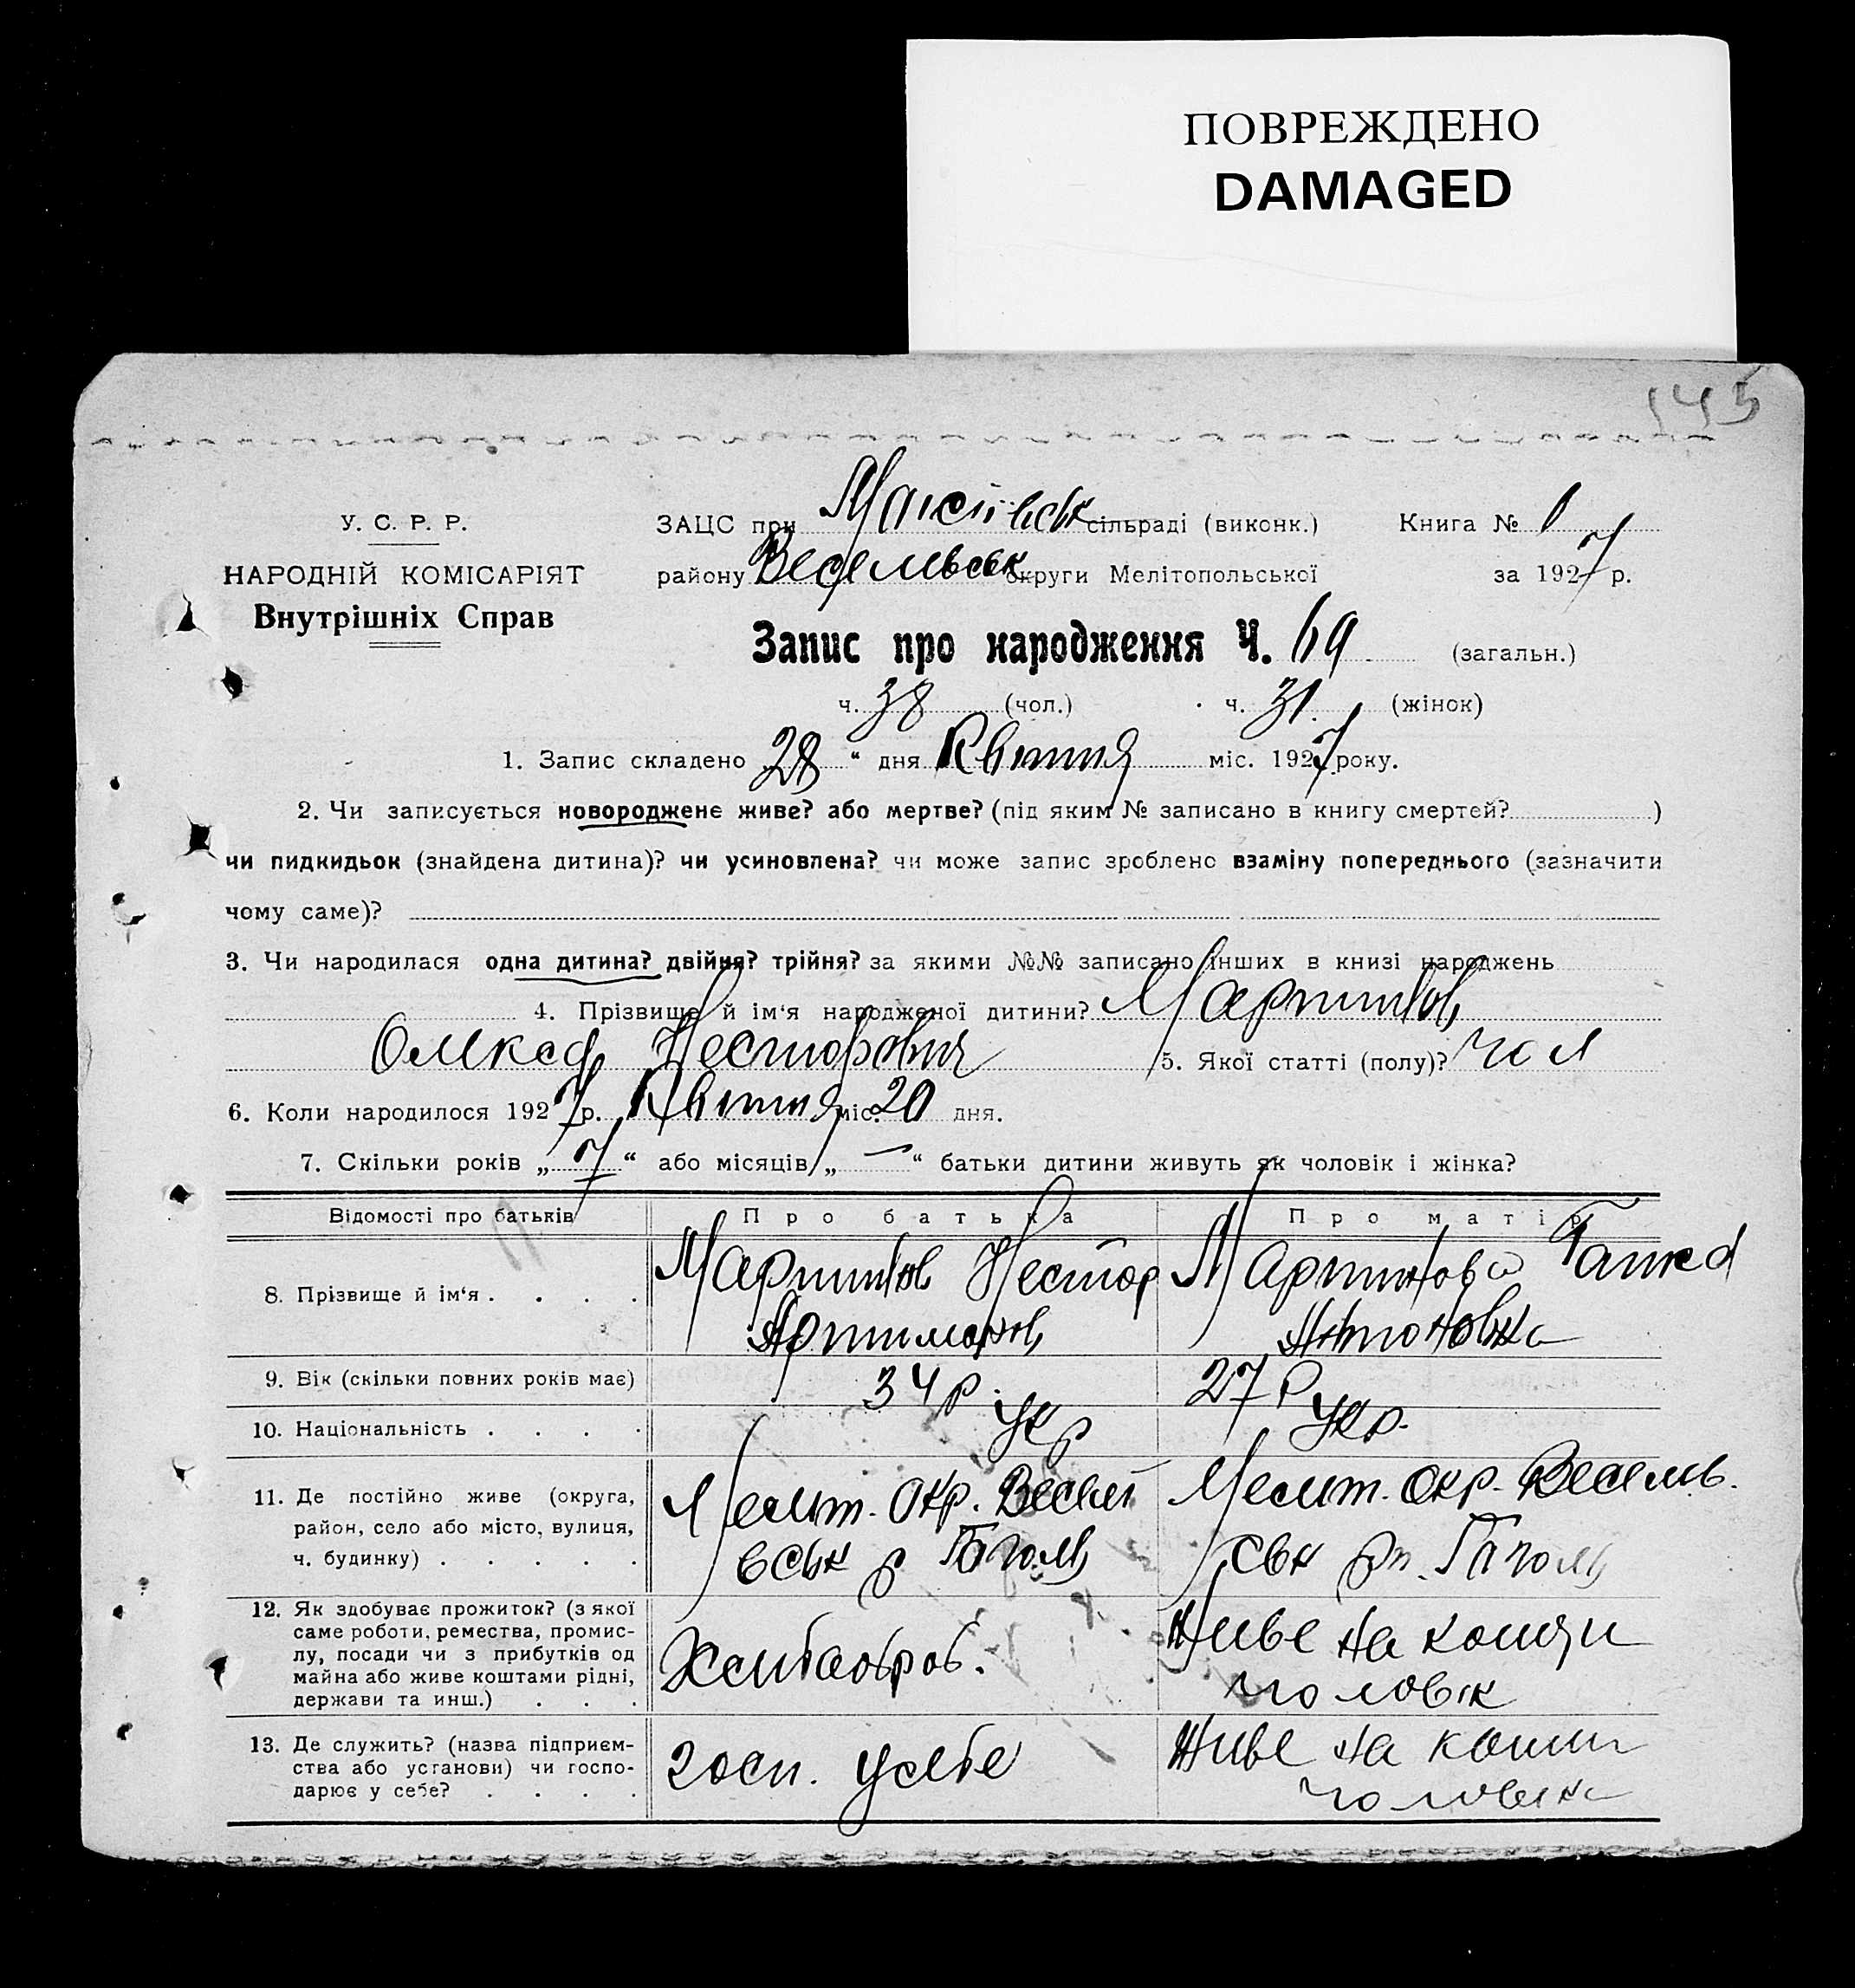 ПОВРЕЖДЕНО
DAMAGED
145
У. С. Р. Р.
НАРОДНІЙ КОМІСАРІЯТ
Внутрішніх Справ
ЗАЦС при сільраді (виконк.) Книга № 1
району Веселівськ округи Мелітопольської за 1927 р.
Запис про народження Ч. 69 (загальн.)
ч. 38 (чол.) ч. 31. (жінок)
1. Запис складено 28 “ дня Квітня міс. 1927 року.
2. Чи записується новороджене живе? або мертве? (під яким № записано в книгу смертей? )
чи пидкидьок (знайдена дитина)? чи усиновлена? чи може запис зроблено взаміну попереднього (зазначити
чому саме)?
3. Чи народилася одна дитина? двійня? трійня? за якими №№ записано інших в книзі народжень
4. Прізвище й ім‘я народженої дитини? Мартинов
Несторович 5. Якої статті (полу)? чол
6. Коли народилося 1927 р. Квітня міс. 20 дня.
7. Скільки років „ 7 “ або місяців „ — “ батьки дитини живуть як чоловік і жінка?
Відомості про батьків Про батька Про матір
8. Прізвище й ім‘я . . . . Мартинов Нестор Мартинова Ганка
Антоновна
9. Вік (скільки повних років має) 34 р. 27 р
10. Національність . . . . Укр Укр.
11. Де постійно живе (округа, район, село або місто, вулиця, ч. будинку) . . . . . Мелит. Окр. Веселі Мелит. Окр. Веселів.
вськ р ськ рн.
12. Як здобуває прожиток? (з якої саме роботи, ремества, промислу, посади чи з прибутків од майна або живе коштами рідні, держави та инш.) . . . Хлибороб. Живе на кошти
чоловік
13. Де служить? (назва підприємства або установи) чи господарює у себе? . . . . госп. усебе Живе на кошти
чоловіка